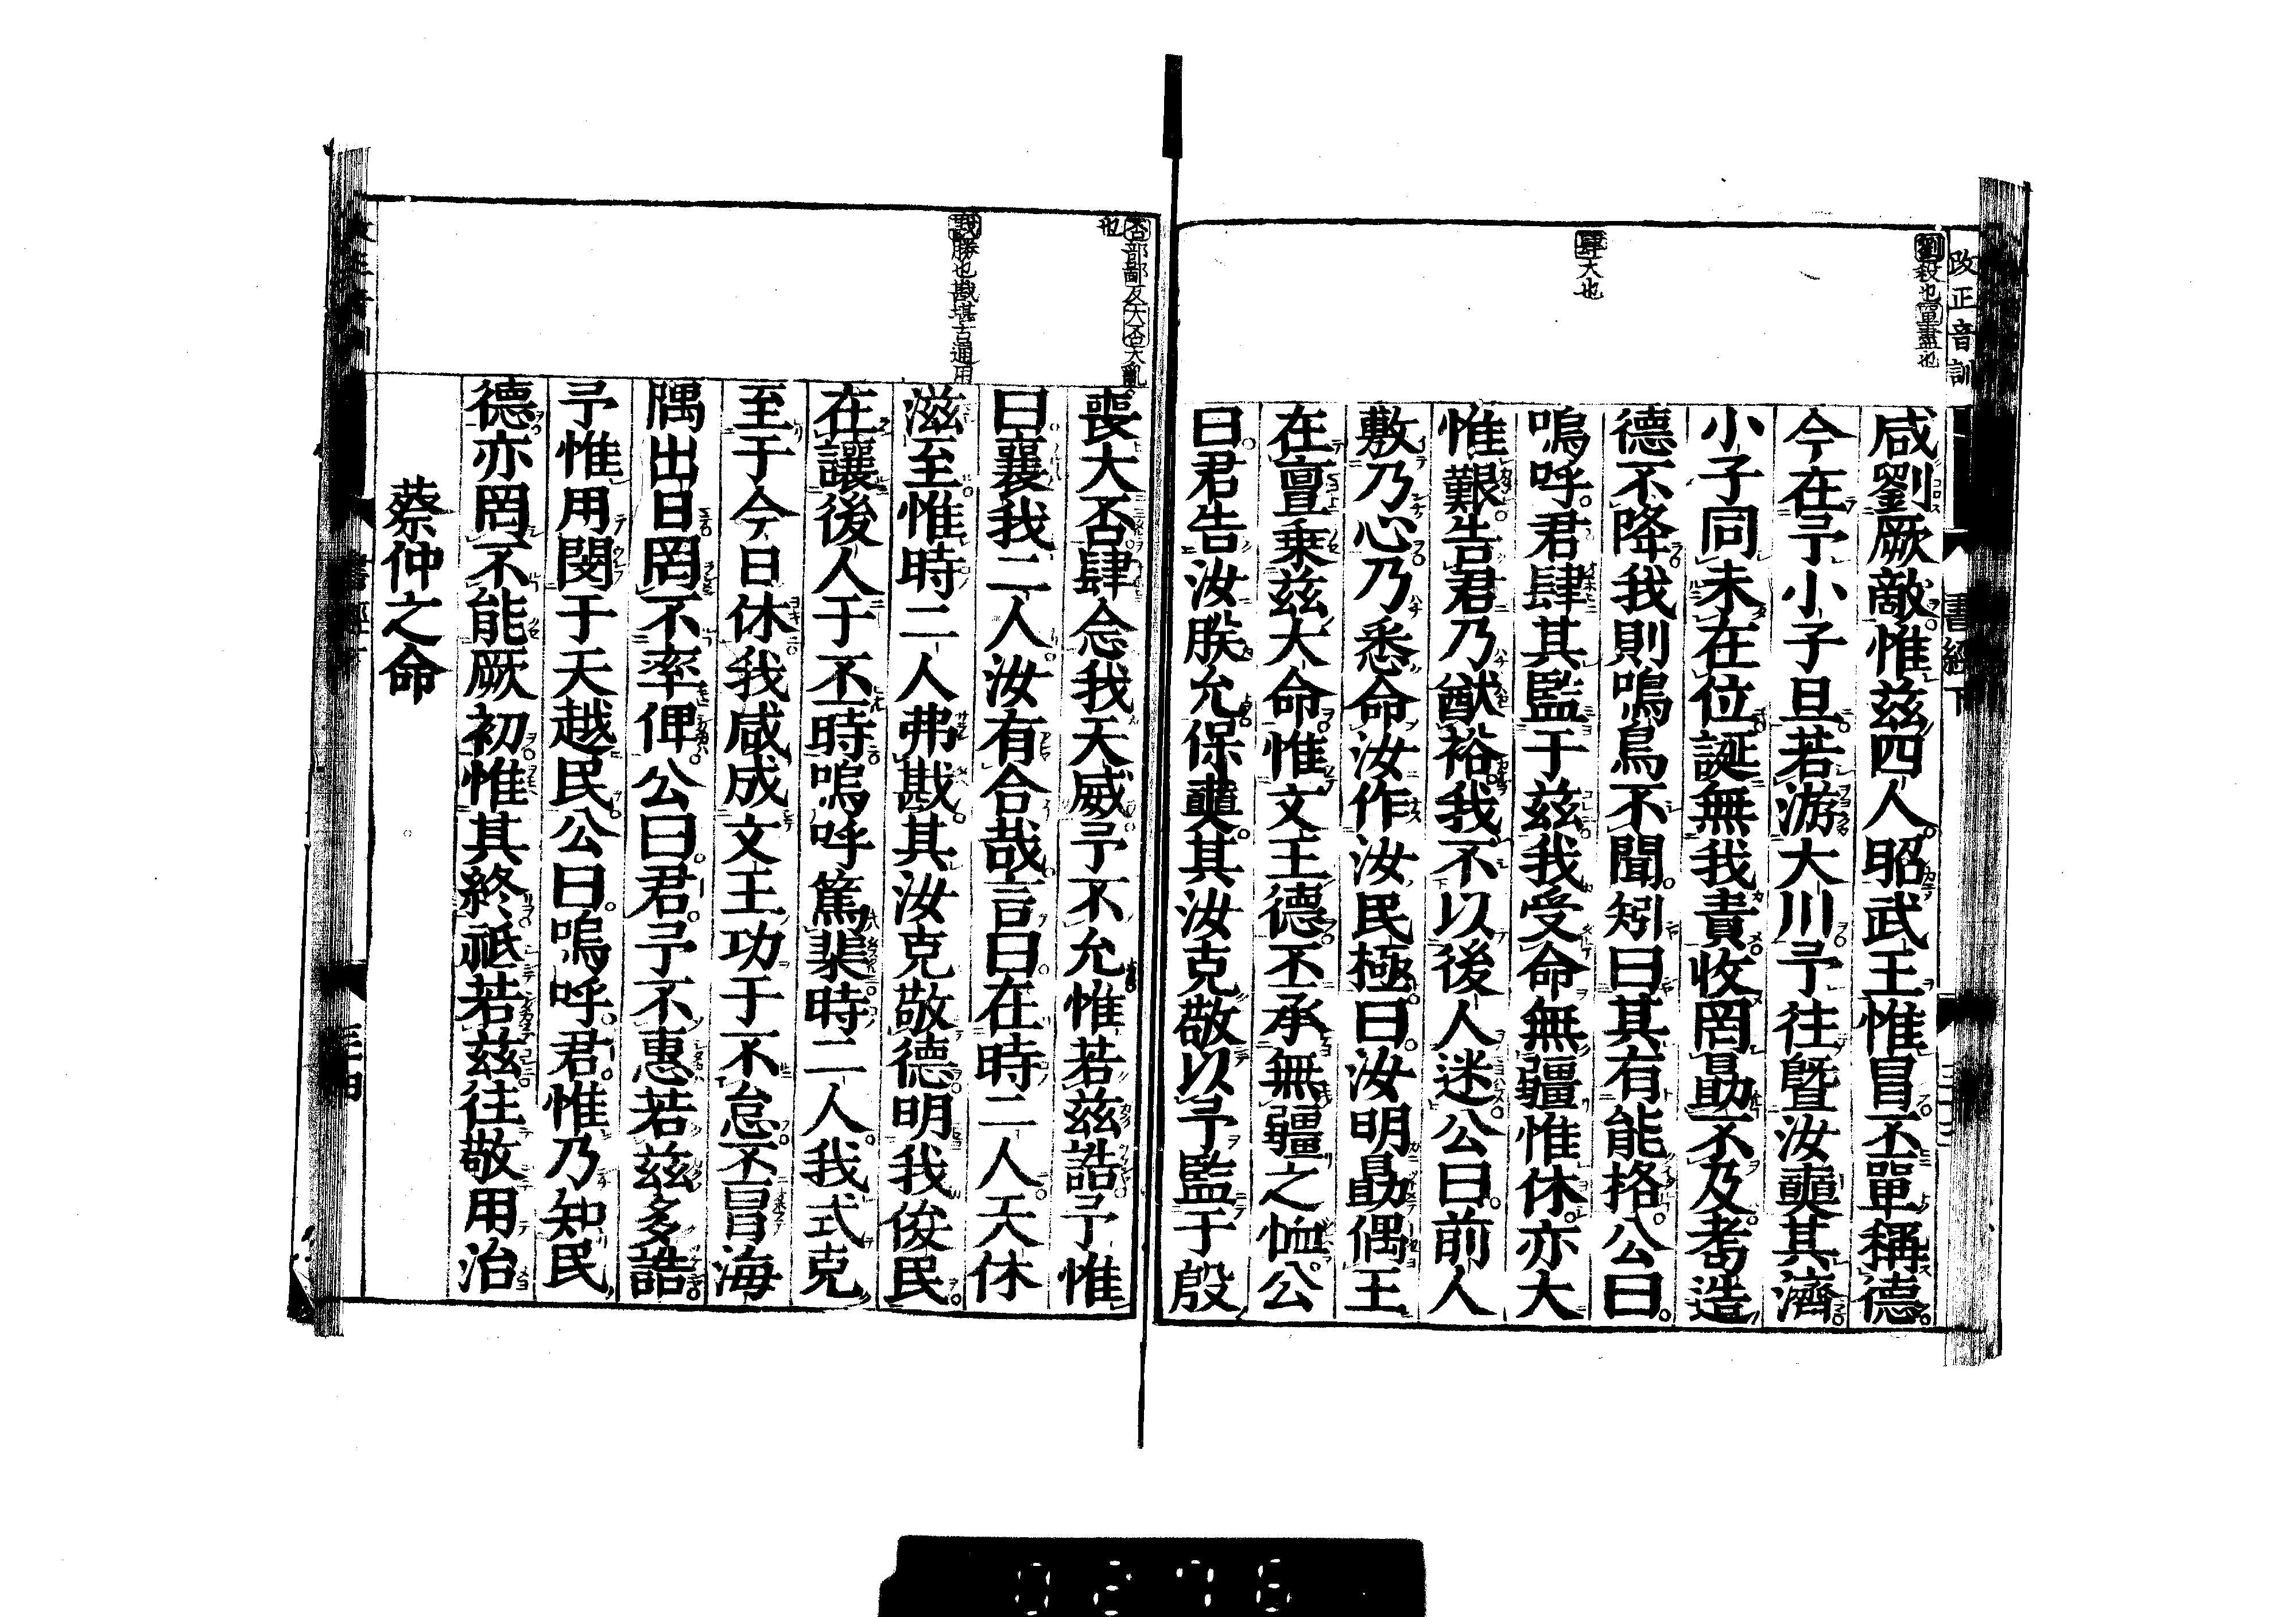 改正音訓
書經下
劉殺也單盡也
肆大也
咸劉厥敵惟茲四人昭武王惟冒丕單稱德
今在予小子旦若游大川予往曁汝奭其濟
小子同未在位誕無我責收罔勗不及耉造
德不降我則鳴鳥不聞矧曰其有能格公曰
嗚呼君肆其監于茲我受命無疆惟休亦大
惟艱告君乃猷裕我不以後人迷公曰前人
敷乃心乃悉命汝作汝民極曰汝明勗偶王
在亶乗茲大命惟文王德丕承無疆之恤公
曰君告汝朕允保奭其汝克敬以予監于殷
否部鄙反大否大亂
也
戡勝也戡堪古通用
喪大否肆念我天威予不允惟若茲誥予惟
曰襄我二人汝有合哉言曰在時二人天休
滋至惟時二人弗戡其汝克敬德明我俊民
在讓後人于丕時嗚呼篤棐時二人我式克
至于今日休我咸成文王功于不怠丕冒海
隅出日罔不率俾公曰君予不惠若茲多誥
予惟用閔于天越民公曰嗚呼君惟乃知民
德亦罔不能厥初惟其終祗若茲往敬用治
蔡仲之命
0276